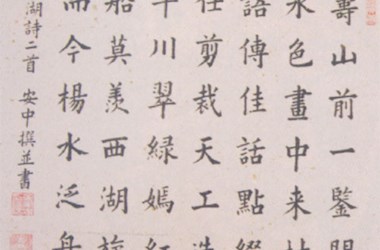 壽山前一鑒開
水色畫中来
語傳佳話點綴
任剪裁天工造
千川翠綠嫣紅
船莫羨西湖
而今楊水泛舟
湖詩二首 安中撰並書